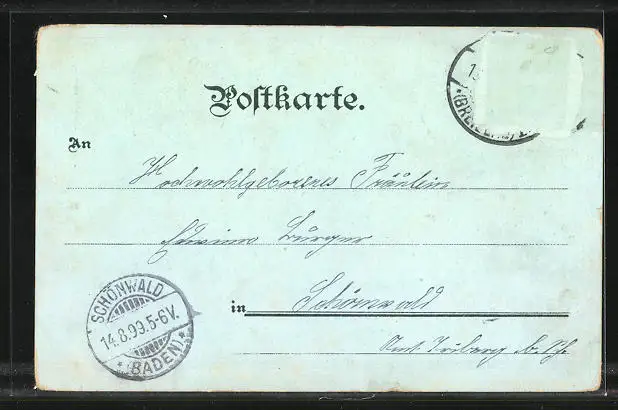 Postkarte.
An
Hochwohlgeborenes Fräulein
Edwina Burger
in Schönwald
Amt Triberg b. Sch.
SCHÖNWALD
14.8.99.5-6V.
*(BADEN)*